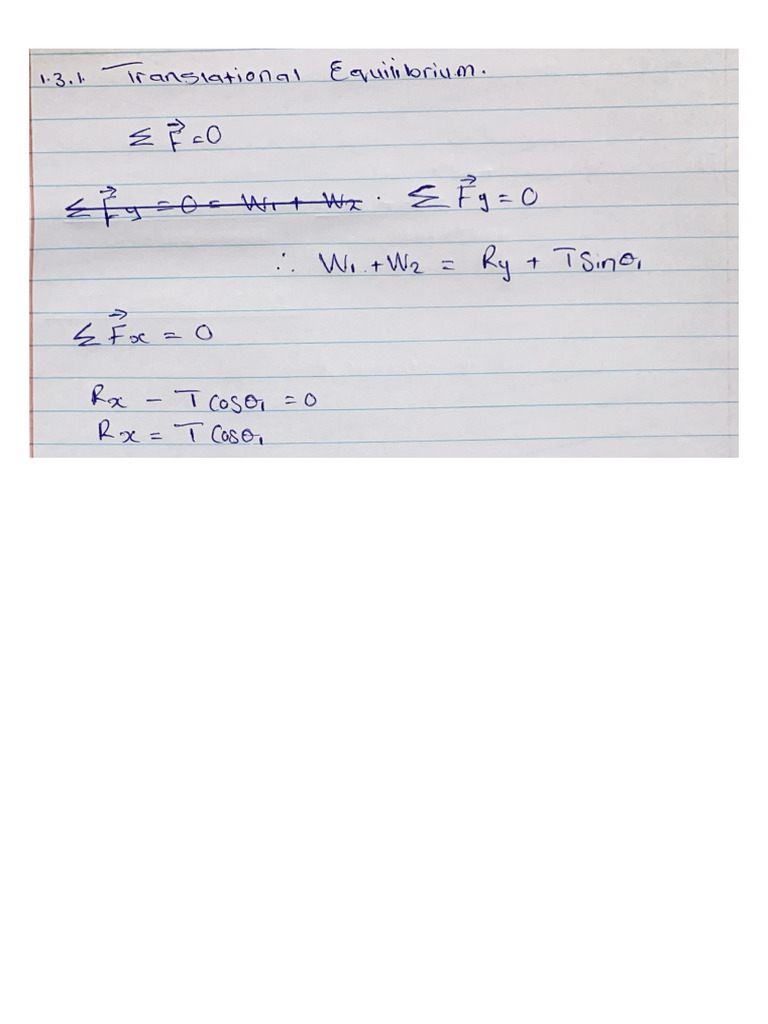 1.3.1. Translational Equilibrium.
Σ F⃗ = 0
~~Σ F⃗y = 0 = W1 + W2~~ . Σ F⃗y = 0
∴ W1 + W2 = Ry + T Sinθ1
Σ F⃗x = 0
Rx − T Cosθ1 = 0
Rx = T Cosθ1